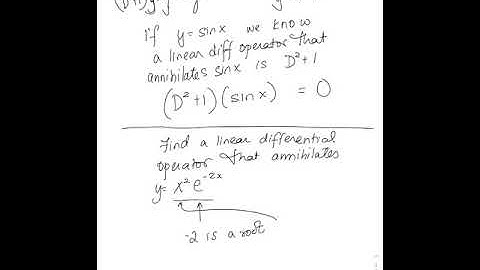 if y = sin x we know
a linear diff operator that
annihilates sin x is D²+1
(D²+1) (sin x) = 0
Find a linear differential
operator that annihilates
y = x²e⁻²ˣ
-2 is a root